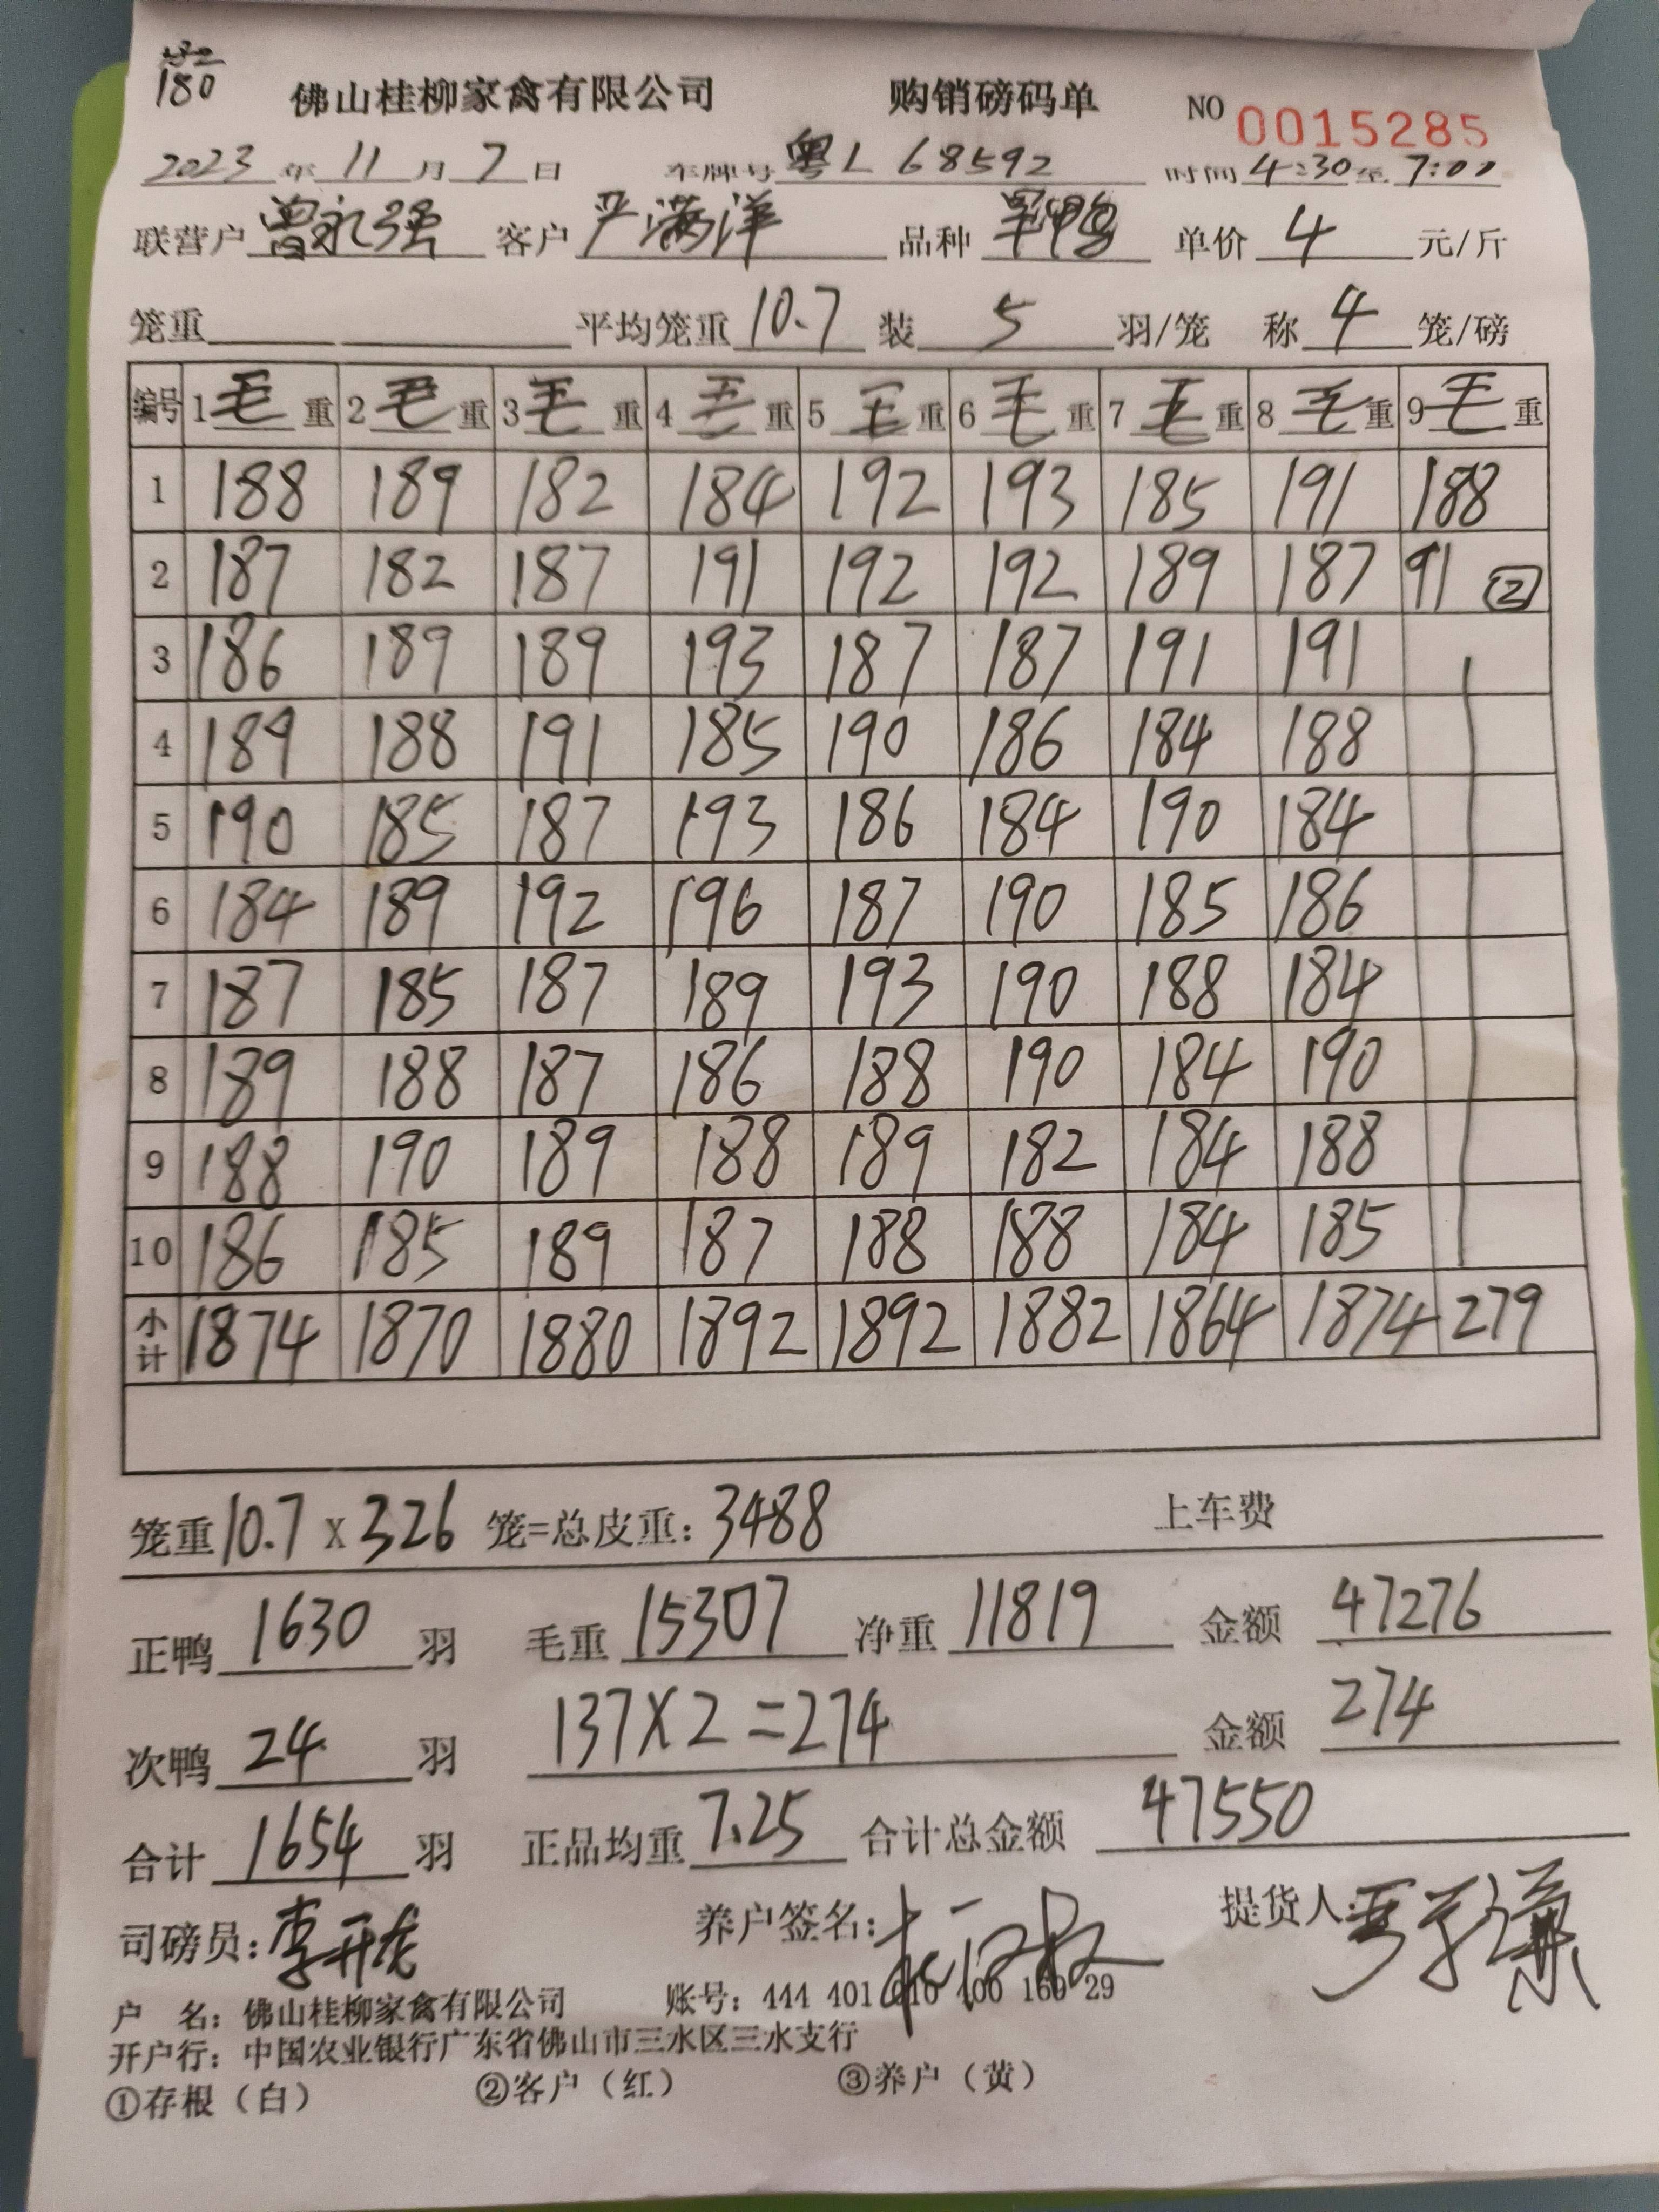 180
佛山桂柳家禽有限公司 购销磅码单 NO 0015285
2023 年 11 月 7 日 车牌号 粤L 68592 时间 4:30 至 7:00
联营户 曾永强 客户 严满洋 品种 单价 4 元/斤
笼重 平均笼重 10.7 装 5 羽/笼 称 4 笼/磅
编号 1 毛 重 2 毛 重 3 毛 重 4 毛 重 5 毛 重 6 毛 重 7 毛 重 8 毛 重 9 毛 重
1 188 189 182 184 192 193 185 191 188
2 187 182 187 191 192 192 189 187 91 ②
3 186 189 189 193 187 187 191 191
4 189 188 191 185 190 186 184 188
5 190 185 187 193 186 184 190 184
6 184 189 192 196 187 190 185 186
7 187 185 187 189 193 190 188 184
8 189 188 187 186 188 190 184 190
9 188 190 189 188 189 182 184 188
10 186 185 189 187 188 188 184 185
小计 1874 1870 1880 1892 1892 1882 1864 1874 279
笼重 10.7 X 326 笼=总皮重: 3488 上车费
正鸭 1630 羽 毛重 15307 净重 11819 金额 47276
次鸭 24 羽 137X2=274 金额 274
合计 1654 羽 正品均重 7.25 合计总金额 47550
司磅员: 李开龙 养户签名: 提货人:
户 名: 佛山桂柳家禽有限公司 账号: 444 401 010 400 169 29
开户行: 中国农业银行广东省佛山市三水区三水支行
①存根（白） ②客户（红） ③养户（黄）